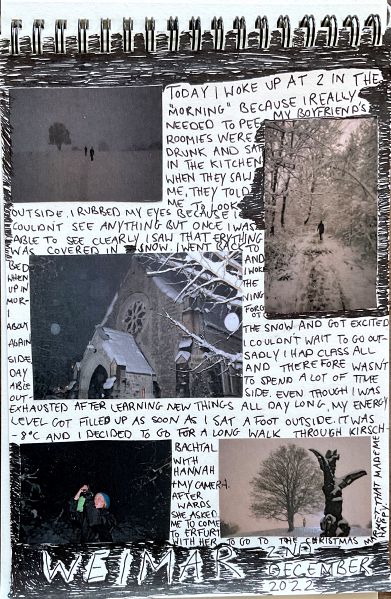 TODAY I WOKE UP AT 2 IN THE
"MORNING" BECAUSE I REALLY
NEEDED TO PEE MY BOYFRIEND'S
ROOMIES WERE
DRUNK AND SAT
IN THE KITCHEN
WHEN THEY SAW
ME, THEY TOLD
ME TO LOOK
OUTSIDE. I RUBBED MY EYES BECAUSE I
COULDNT SEE ANYTHING BUT ONCE I WAS
ABLE TO SEE CLEARLY I SAW THAT ERYTHING
WAS COVERED IN SNOW. I WENT BACK TO
BED AND
WHEN I WOKE
UP IN THE
MOR- NING
FORGOT
ABOUT THE SNOW AND GOT EXCITED
AGAIN COULDNT WAIT TO GO OUT-
SIDE SADLY I HAD CLASS ALL
DAY AND THEREFORE WASNT
ABLE TO SPEND A LOT OF TIME
OUT- SIDE. EVEN THOUGH I WAS
EXHAUSTED AFTER LEARNING NEW THINGS ALL DAY LONG, MY ENERGY
LEVEL GOT FILLED UP AS SOON AS I SAT A FOOT OUTSIDE. IT WAS
-8°C AND I DECIDED TO GO FOR A LONG WALK THROUGH KIRSCH-
BACHTAL
WITH
HANNAH
+ MY CAMERA.
AFTER
WARDS
SHE ASKED
ME TO COME
TO ERFURT
WITH HER TO GO TO THE CHRISTMAS
MARKET THAT MADE ME
HAPPY.
WEIMAR 2ND
DECEMBER
2022